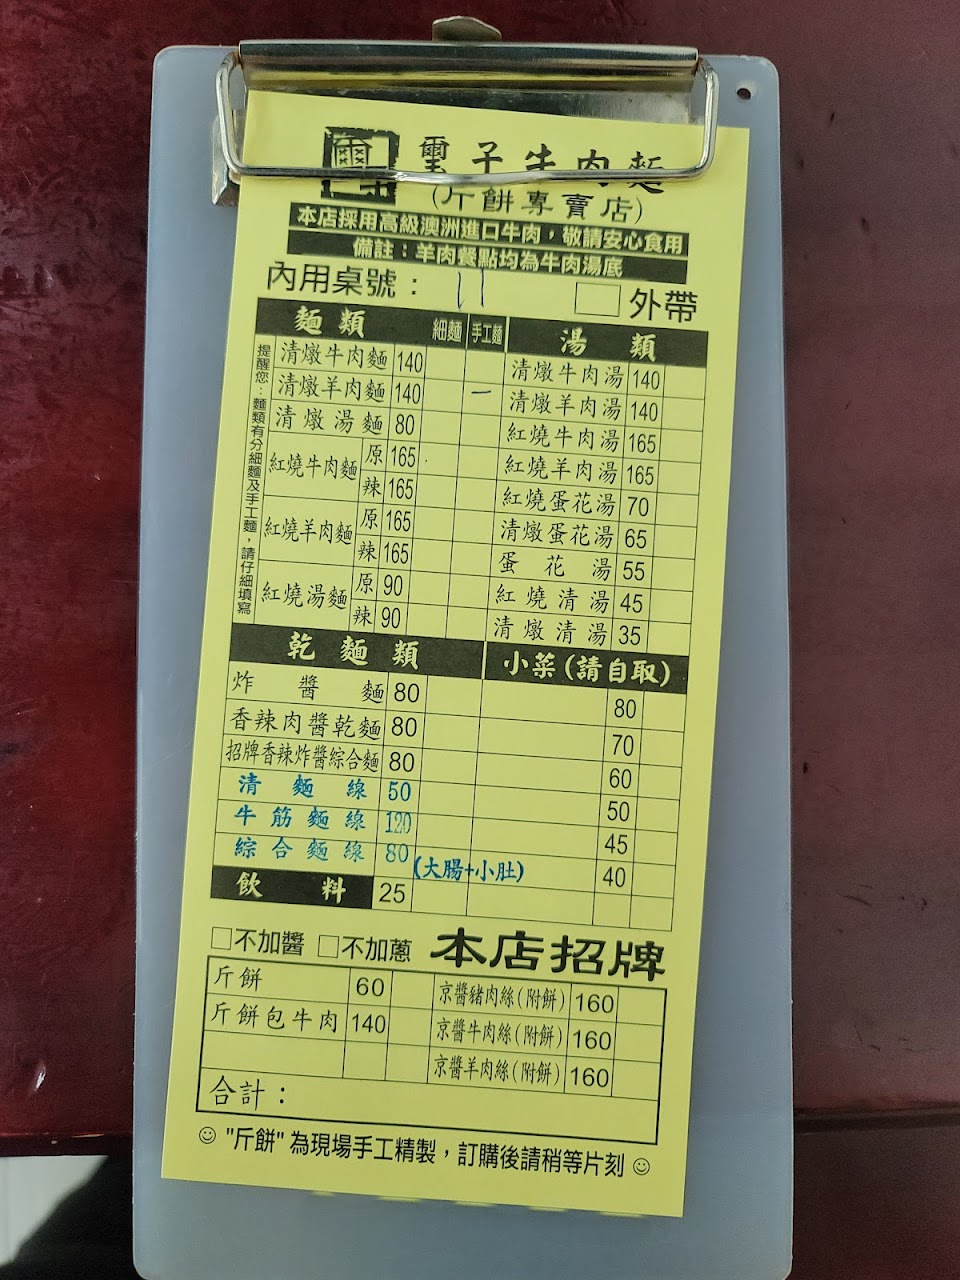 璽子牛肉麵
(斤餅專賣店)
本店採用高級澳洲進口牛肉，敬請安心食用
備註：羊肉餐點均為牛肉湯底
內用桌號： 11 □外帶
麵類 細麵 手工麵
提醒您：麵類有分細麵及手工麵，請仔細填寫
清燉牛肉麵 140
清燉羊肉麵 140 一
清燉湯麵 80
紅燒牛肉麵 原 165
辣 165
紅燒羊肉麵 原 165
辣 165
紅燒湯麵 原 90
辣 90
湯類
清燉牛肉湯 140
清燉羊肉湯 140
紅燒牛肉湯 165
紅燒羊肉湯 165
紅燒蛋花湯 70
清燉蛋花湯 65
蛋花湯 55
紅燒清湯 45
清燉清湯 35
乾麵類
炸醬麵 80
香辣肉醬乾麵 80
招牌香辣炸醬綜合麵 80
清麵線 50
牛筋麵線 120
綜合麵線 80 (大腸+小肚)
飲料 25
小菜(請自取)
80
70
60
50
45
40
□不加醬 □不加蔥 本店招牌
斤餅 60
斤餅包牛肉 140
京醬豬肉絲(附餅) 160
京醬牛肉絲(附餅) 160
京醬羊肉絲(附餅) 160
合計：
☺"斤餅"為現場手工精製，訂購後請稍等片刻☺